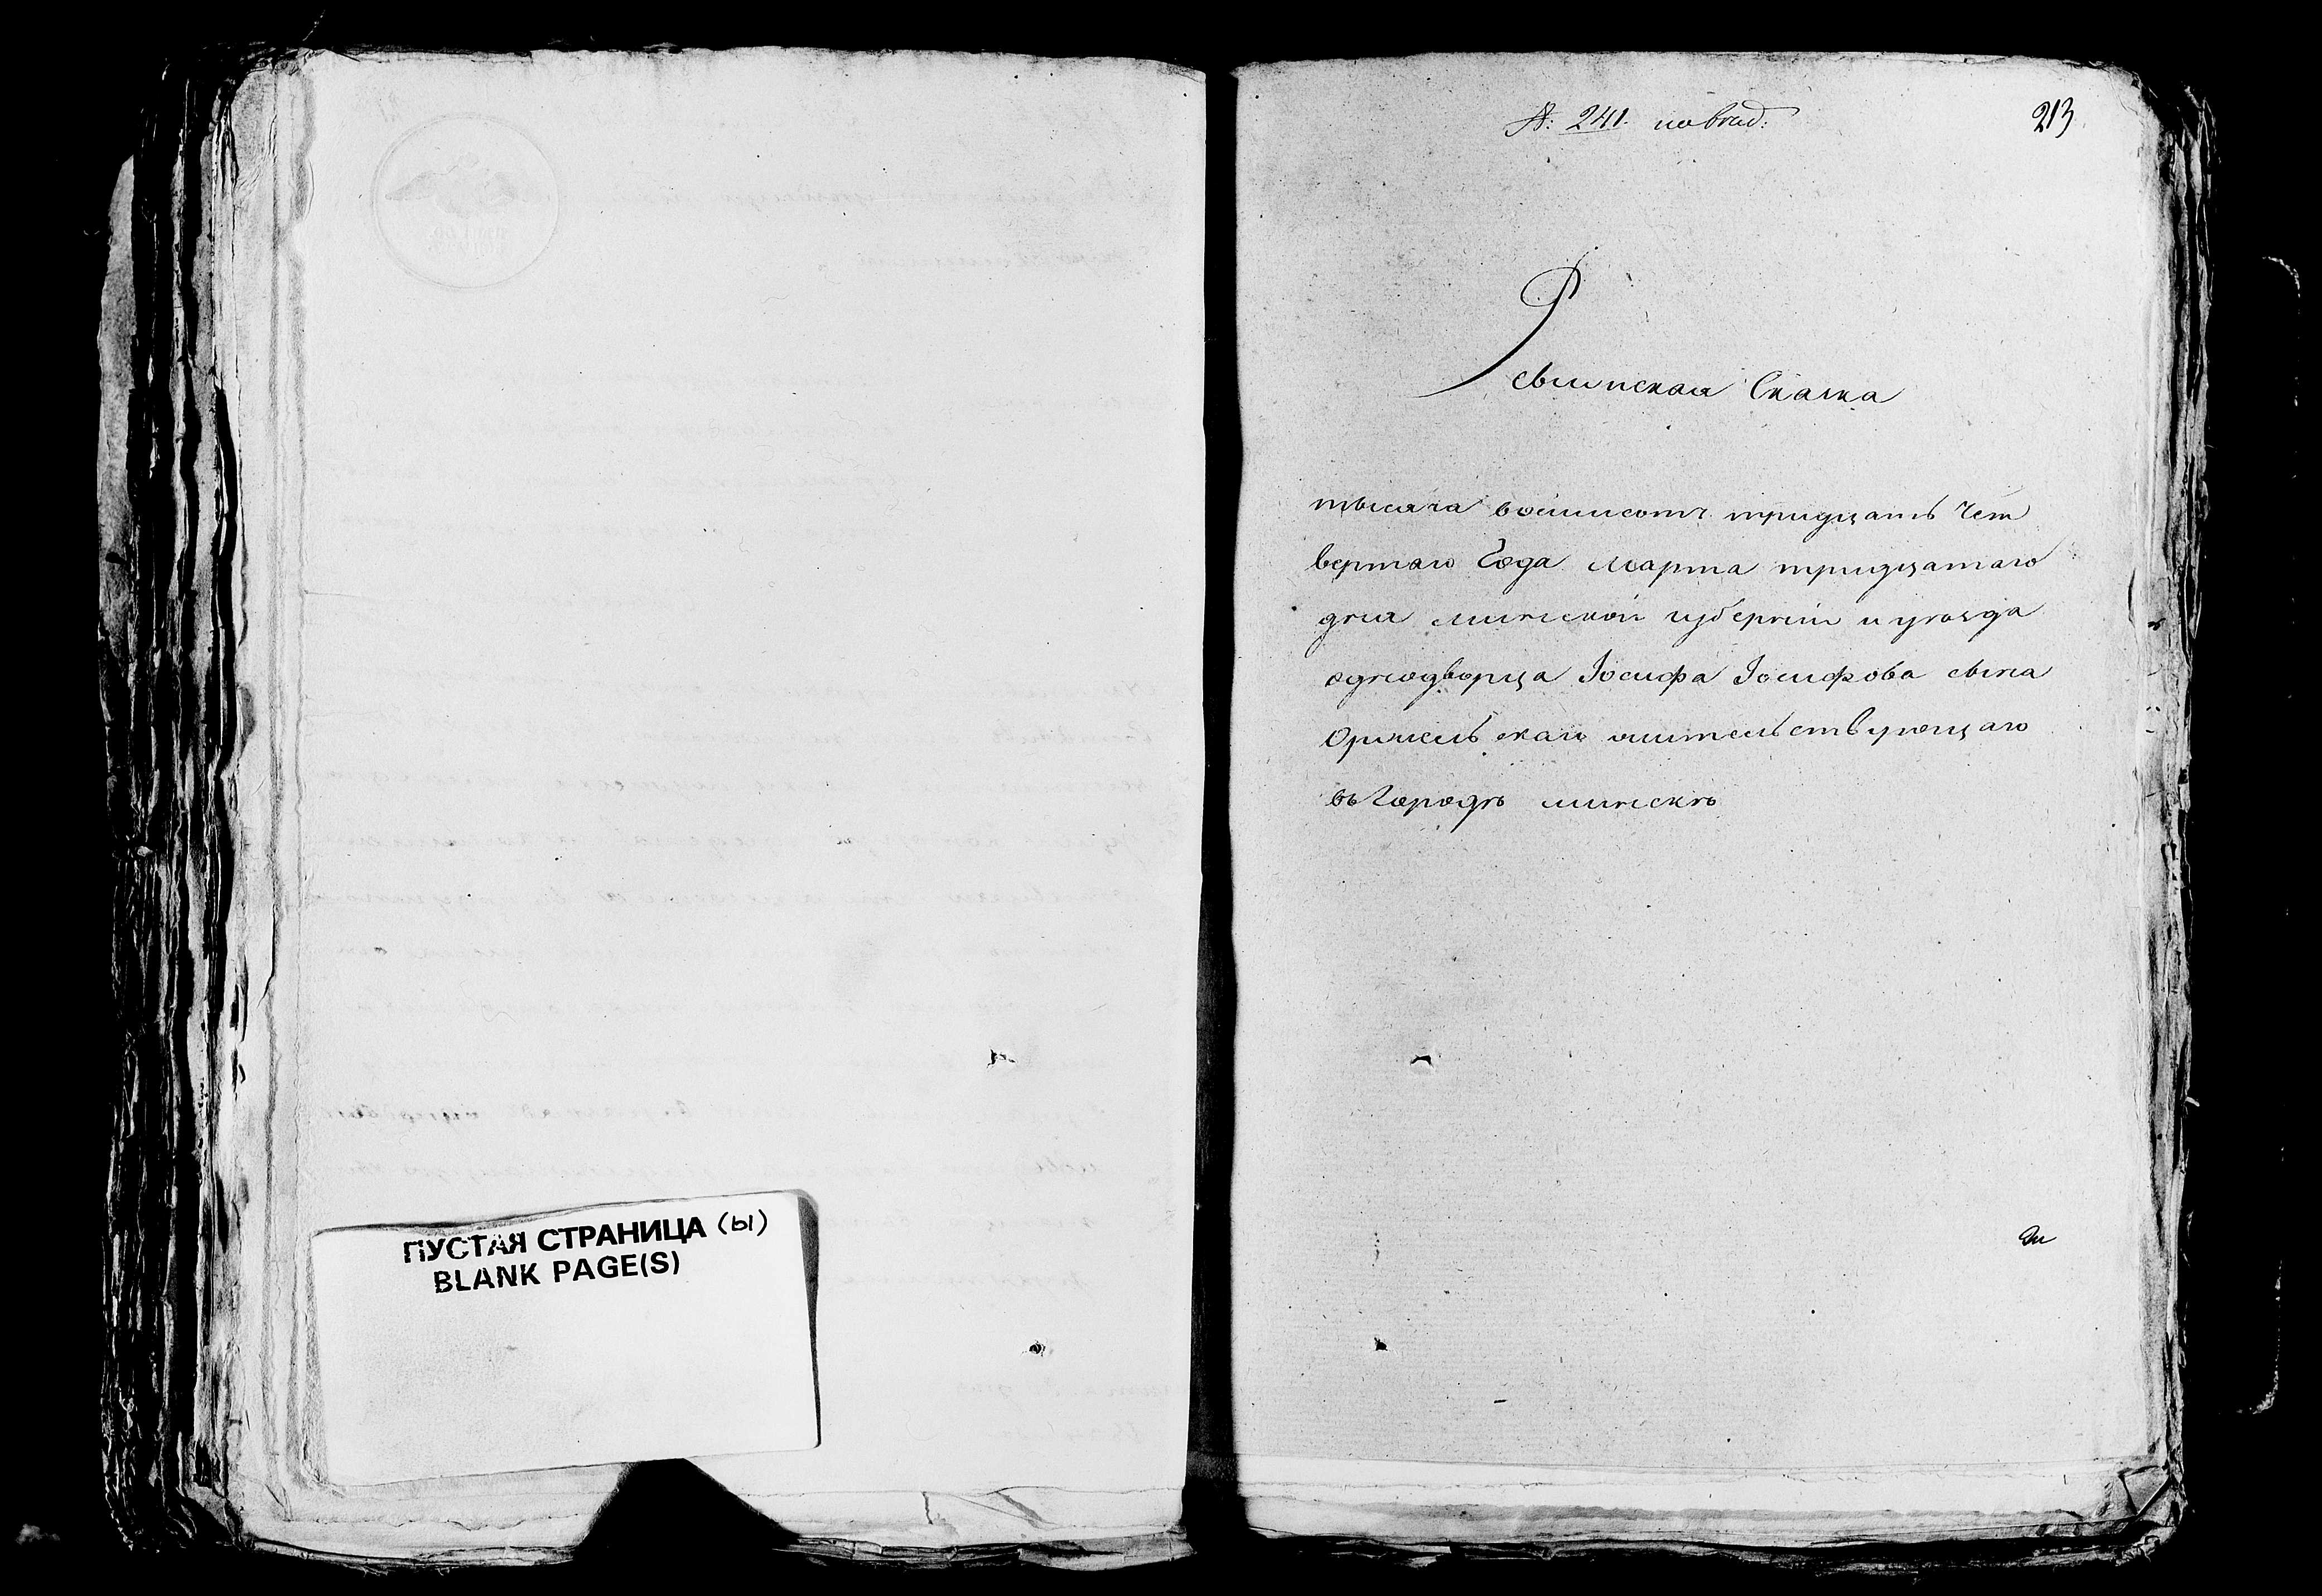 ПУСТАЯ СТРАНИЦА (ы)
BLANK PAGE(S)
№: 241. 
213
Ревинская Сказка
тысяча восимсотъ тридцать чет
вертаго Года марта тридцатаго
дня минской губерніи и уѣзда
однодворца Іосифа Іосифова сына
жительствующаго
въ Городѣ минскѣ